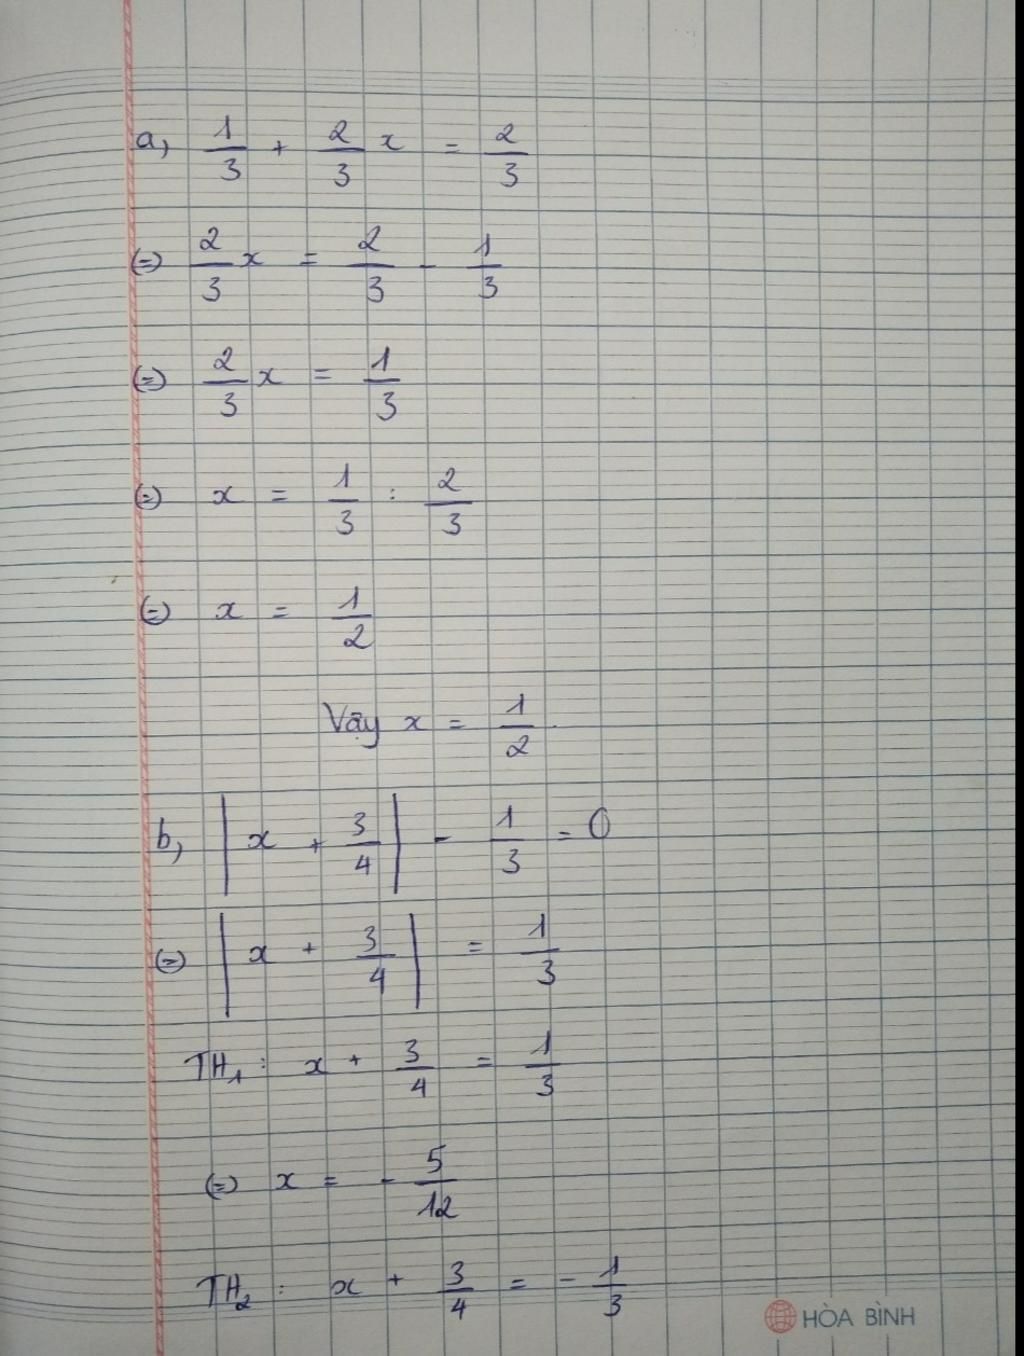 a, 1/3 + 2/3 x = 2/3
(=) 2/3 x = 2/3 - 1/3
(=) 2/3 x = 1/3
(=) x = 1/3 : 2/3
(=) x = 1/2
Vậy x = 1/2.
b, |x + 3/4| - 1/3 = 0
(=) |x + 3/4| = 1/3
TH₁ : x + 3/4 = 1/3
(=) x = - 5/12
TH₂ : x + 3/4 = - 1/3
HÒA BÌNH